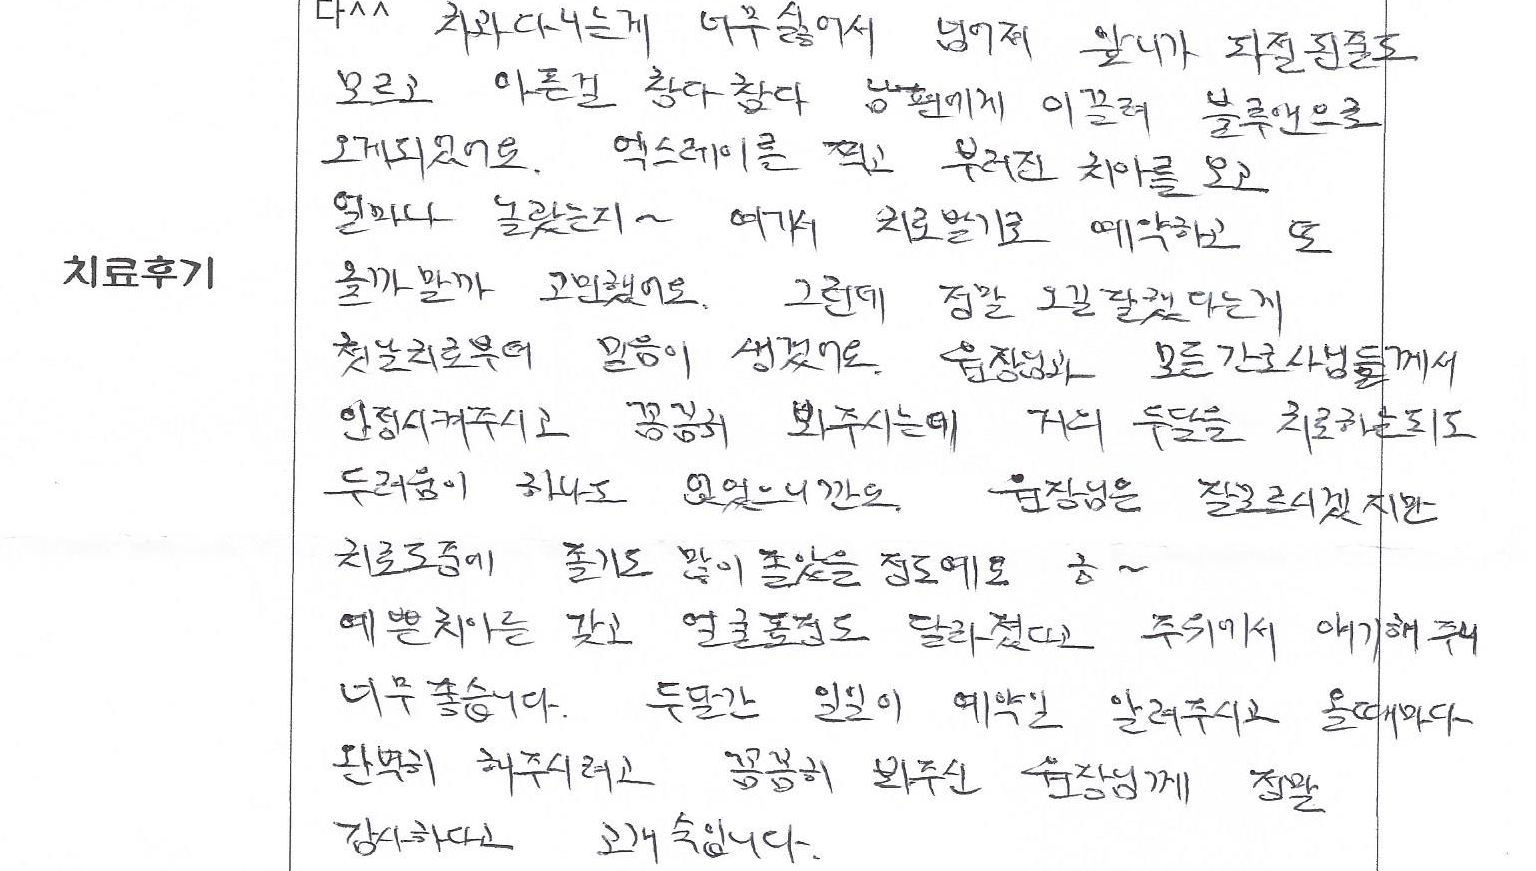 다^^ 치과다니는게 너무싫어서 넘어져 앞니가 파절된줄도
모르고 아픈걸 참다참다 남편에게 이끌려 블루앤으로
오게되었어요. 엑스레이를 찍고 부러진 치아를 보고
얼마나 놀랐는지~ 여기서 치료받기로 예약하고 또
올까말까 고민했어요. 그런데 정말 오길잘했다는게
첫날치료부터 믿음이 생겼어요. 원장님과 모든간호사님들께서
안정시켜주시고 꼼꼼히 봐주시는데 거의 두달을 치료하는데도
두려움이 하나도 없었으니깐요. 원장님은 잘모르시겠지만
치료도중에 졸기도 많이 졸았을 정도예요 ㅎ~
치료후기
예쁜치아를 갖고 얼굴표정도 달라졌다고 주위에서 얘기해주니
너무좋습니다. 두달간 일일이 예약일 알려주시고 올때마다
완벽히 해주시려고 꼼꼼히 봐주신 원장님께 정말
감사하다고 고개숙입니다.